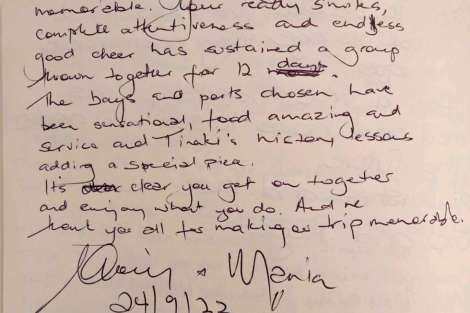 memorable. Your ready smiles,
complete attentiveness and endless
good cheer has sustained a group
thrown together for 12 days.
The bays and ports chosen have
been sensational, food amazing and
service and 's history lessons
adding a special
Its clear you get on together
and enjoy what you do. And we
thank you all for making our trip memorable.
& Maria
24/9/22